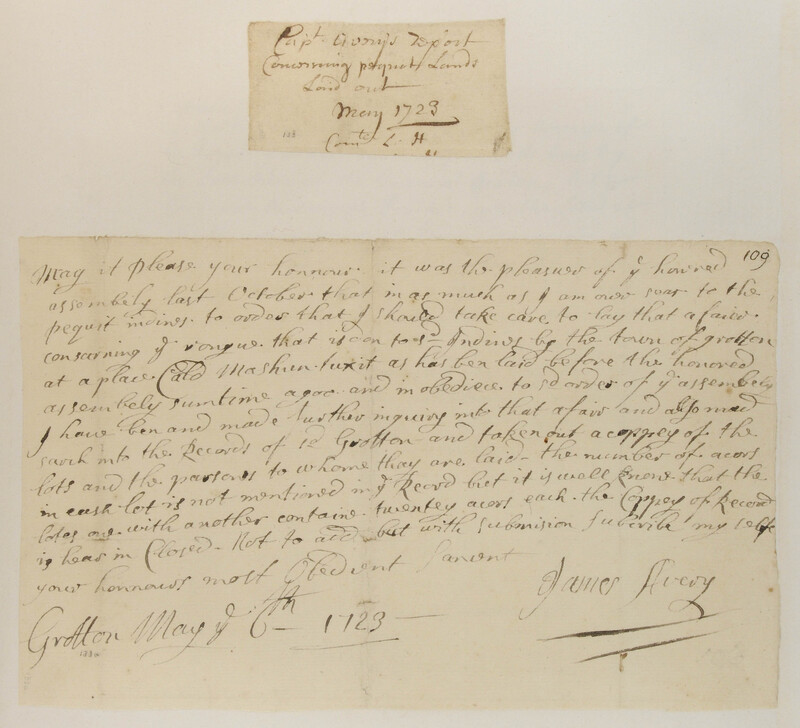 Capt Averys Report
Concerning pequot Lands
Laid out
May 1723
Comte L. H
109
May it please your honnour it was the pleasuer of ye honored
assembely last October that in as much as I am over sear to the
pequit indines to order that I should take care to lay that afaire
consarning ye rongue that is don to sd Indines by the town of grotton
at a place Cald Mashuntuxit as has ben laid before the honored
assembely sumtime agoo and in obediece to sd order of ye assembely
I have ben and made further inquiry into that afair and also mad
sarch into the Records of sd Grotton and taken out a coppey of the
lots and the parsons to whome thay are laid the number of acors
in each lot is not mentioned in ye Record but it is well know that the
lotes one with another containe twentey acors each the Coppey of Record
is hear in Closed Not to add but with submision subcribe my selfe
your honnours most Obedient Sarvent
James Avery
Grotton May ye 6th 1723